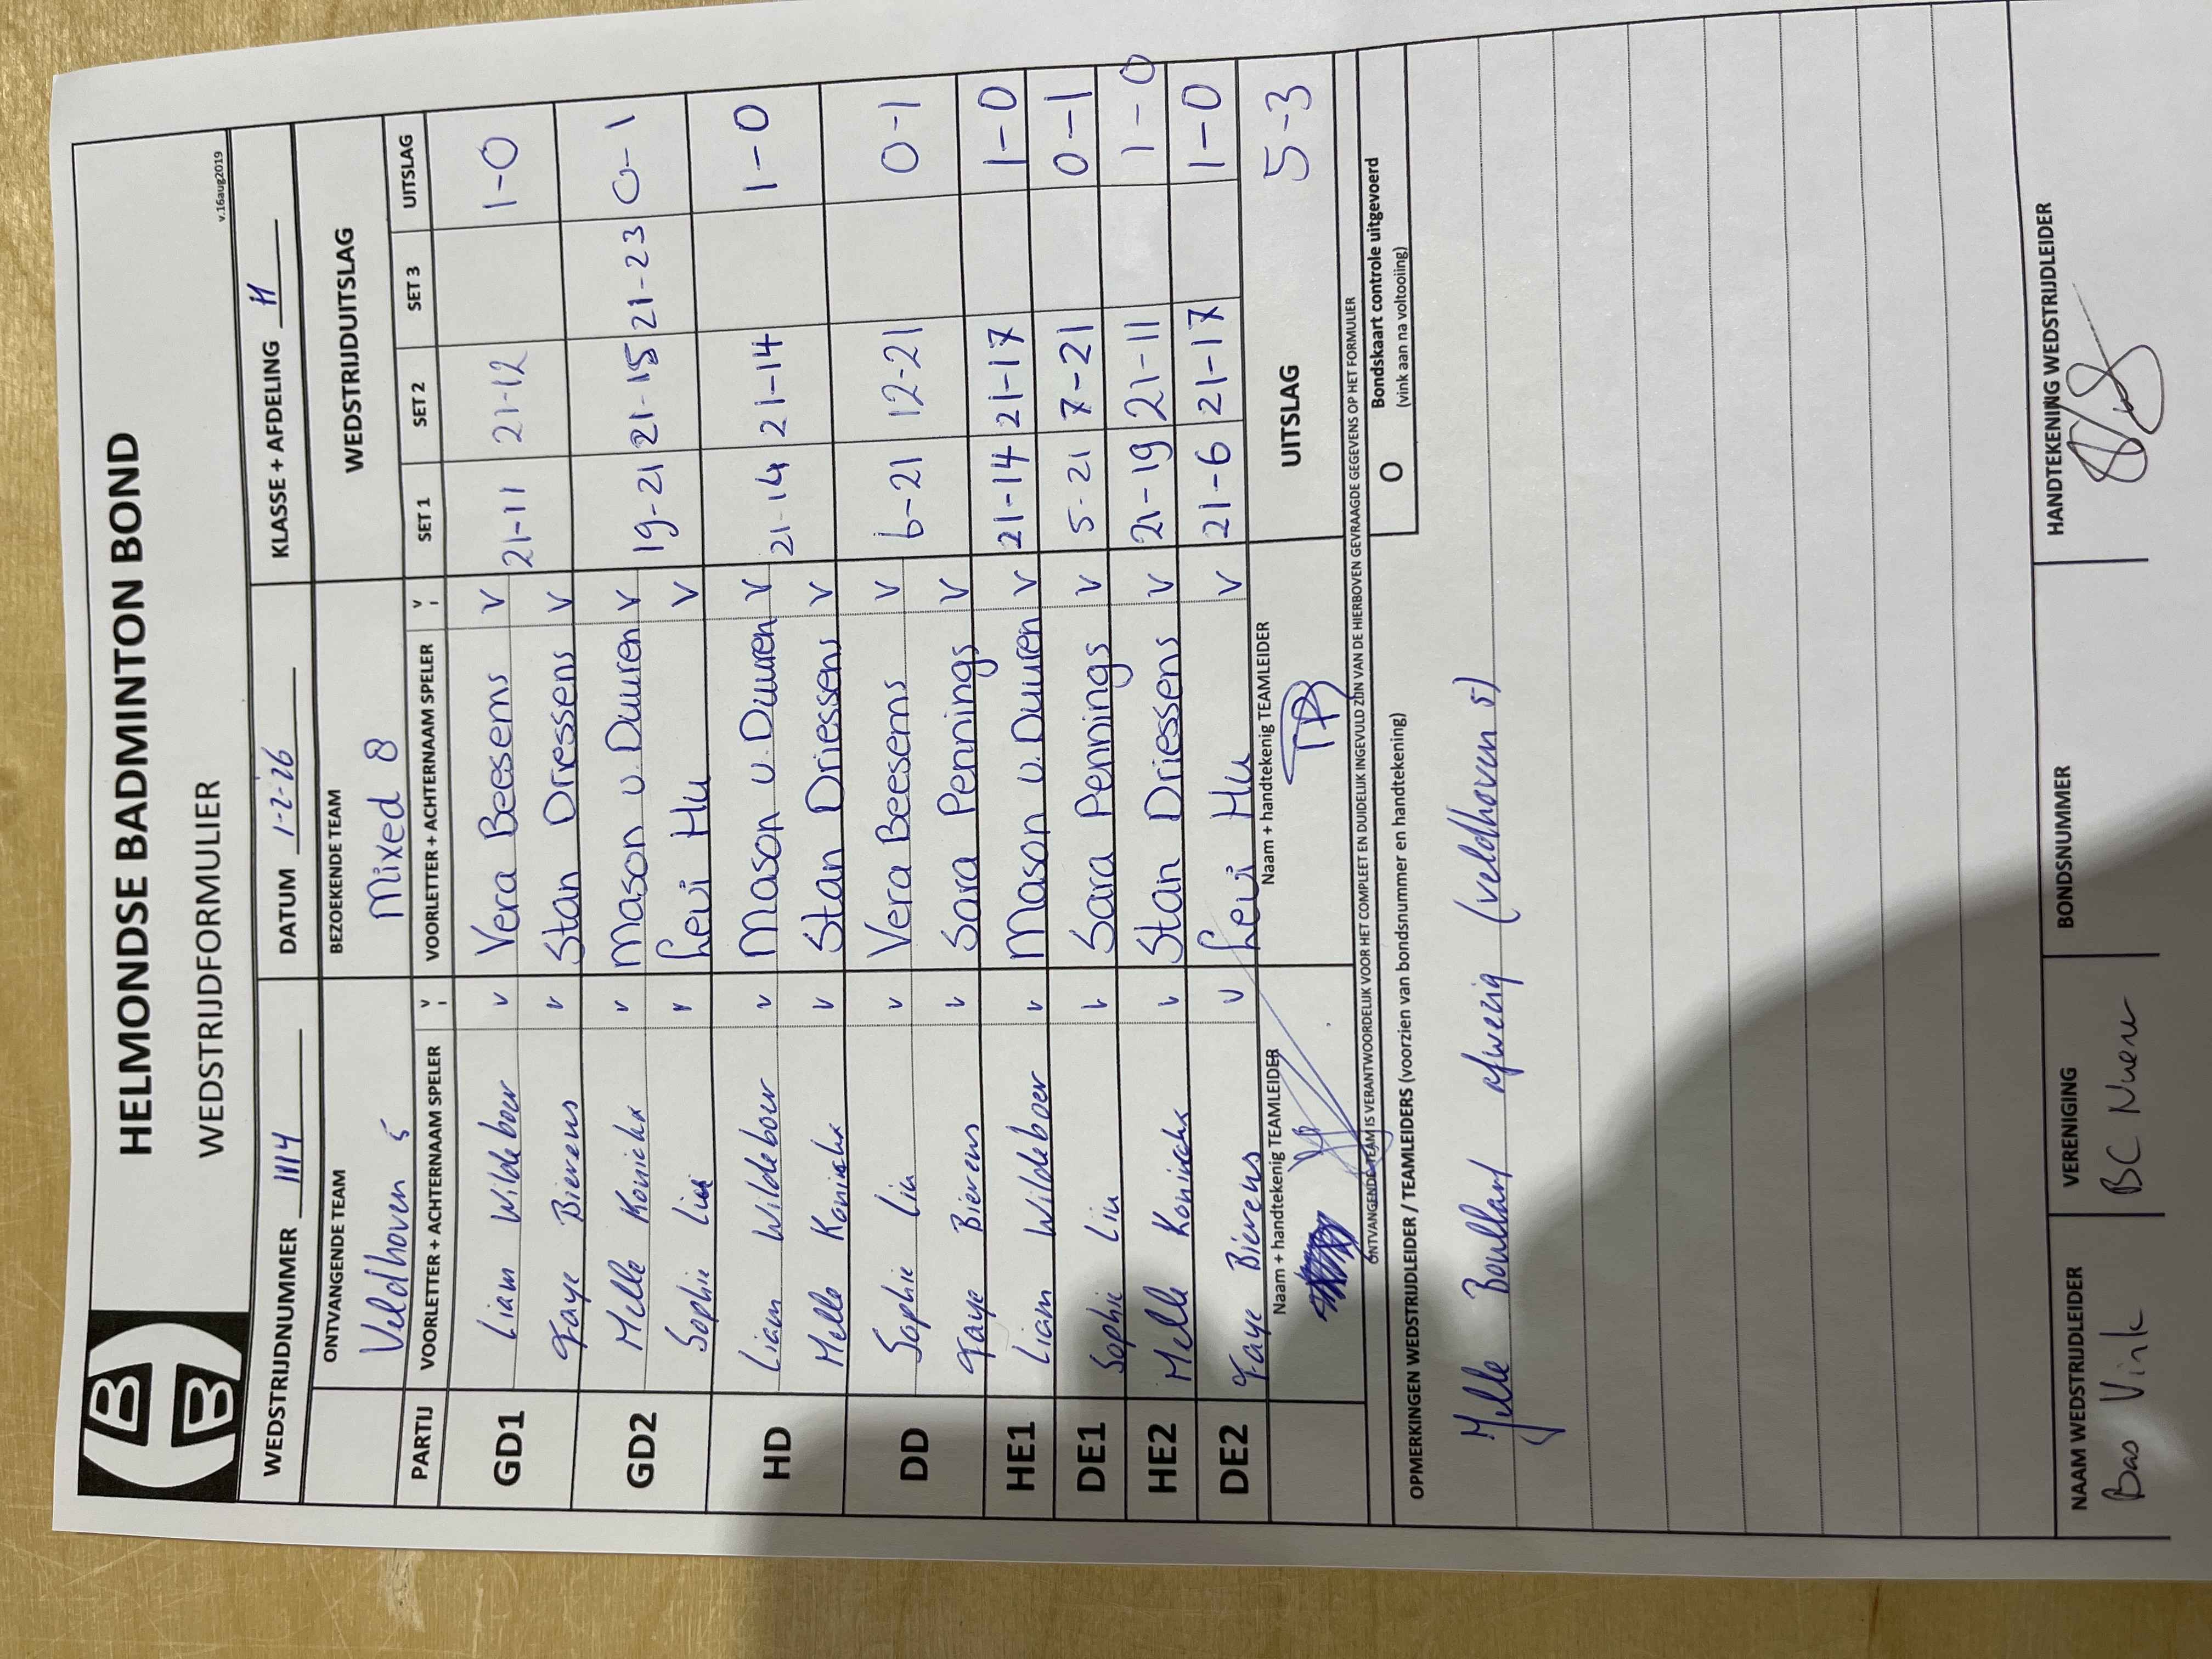 HELMONDSE BADMINTON BOND
WEDSTRIJDFORMULIER
v.16aug2019
WEDSTRIJDNUMMER 1114 DATUM 1-2-'26 KLASSE + AFDELING H
ONTVANGENDE TEAM BEZOEKENDE TEAM WEDSTRIJDUITSLAG
Veldhoven 5 Mixed 8
PARTIJ VOORLETTER + ACHTERNAAM SPELER V VOORLETTER + ACHTERNAAM SPELER V SET 1 SET 2 SET 3 UITSLAG
GD1 Liam Wildeboer v Vera Beesems v 21-11 21-12 1-0
Faye Bierens v Stan Driessens v
GD2 Melle Konickx v Mason v. Duuren v 19-21 21-15 21-23 0-1
Sophie Liu v Levi Hu v
HD Liam Wildeboer v Mason v. Duuren v 21-14 21-14 1-0
Melle Koninckx v Stan Driessens v
DD Sophie Liu v Vera Beesems v 6-21 12-21 0-1
Faye Bierens v Sara Pennings v
HE1 Liam Wildeboer v Mason v. Duuren v 21-14 21-17 1-0
DE1 Sophie Liu v Sara Pennings v 5-21 7-21 0-1
HE2 Melle Koninckx v Stan Driessens v 21-19 21-11 1-0
DE2 Faye Bierens v Levi Hu v 21-6 21-17 1-0
Naam + handtekenig TEAMLEIDER Naam + handtekenig TEAMLEIDER UITSLAG 5-3
ONTVANGENDE TEAM IS VERANTWOORDELIJK VOOR HET COMPLEET EN DUIDELIJK INGEVULD ZIJN VAN DE HIERBOVEN GEVRAAGDE GEGEVENS OP HET FORMULIER
OPMERKINGEN WEDSTRIJDLEIDER / TEAMLEIDERS (voorzien van bondsnummer en handtekening)
O Bondskaart controle uitgevoerd
(vink aan na voltooiing)
Jelle Boullart afwezig (veldhoven 5)
NAAM WEDSTRIJDLEIDER VERENIGING BONDSNUMMER HANDTEKENING WEDSTRIJDLEIDER
Bas Vink BC